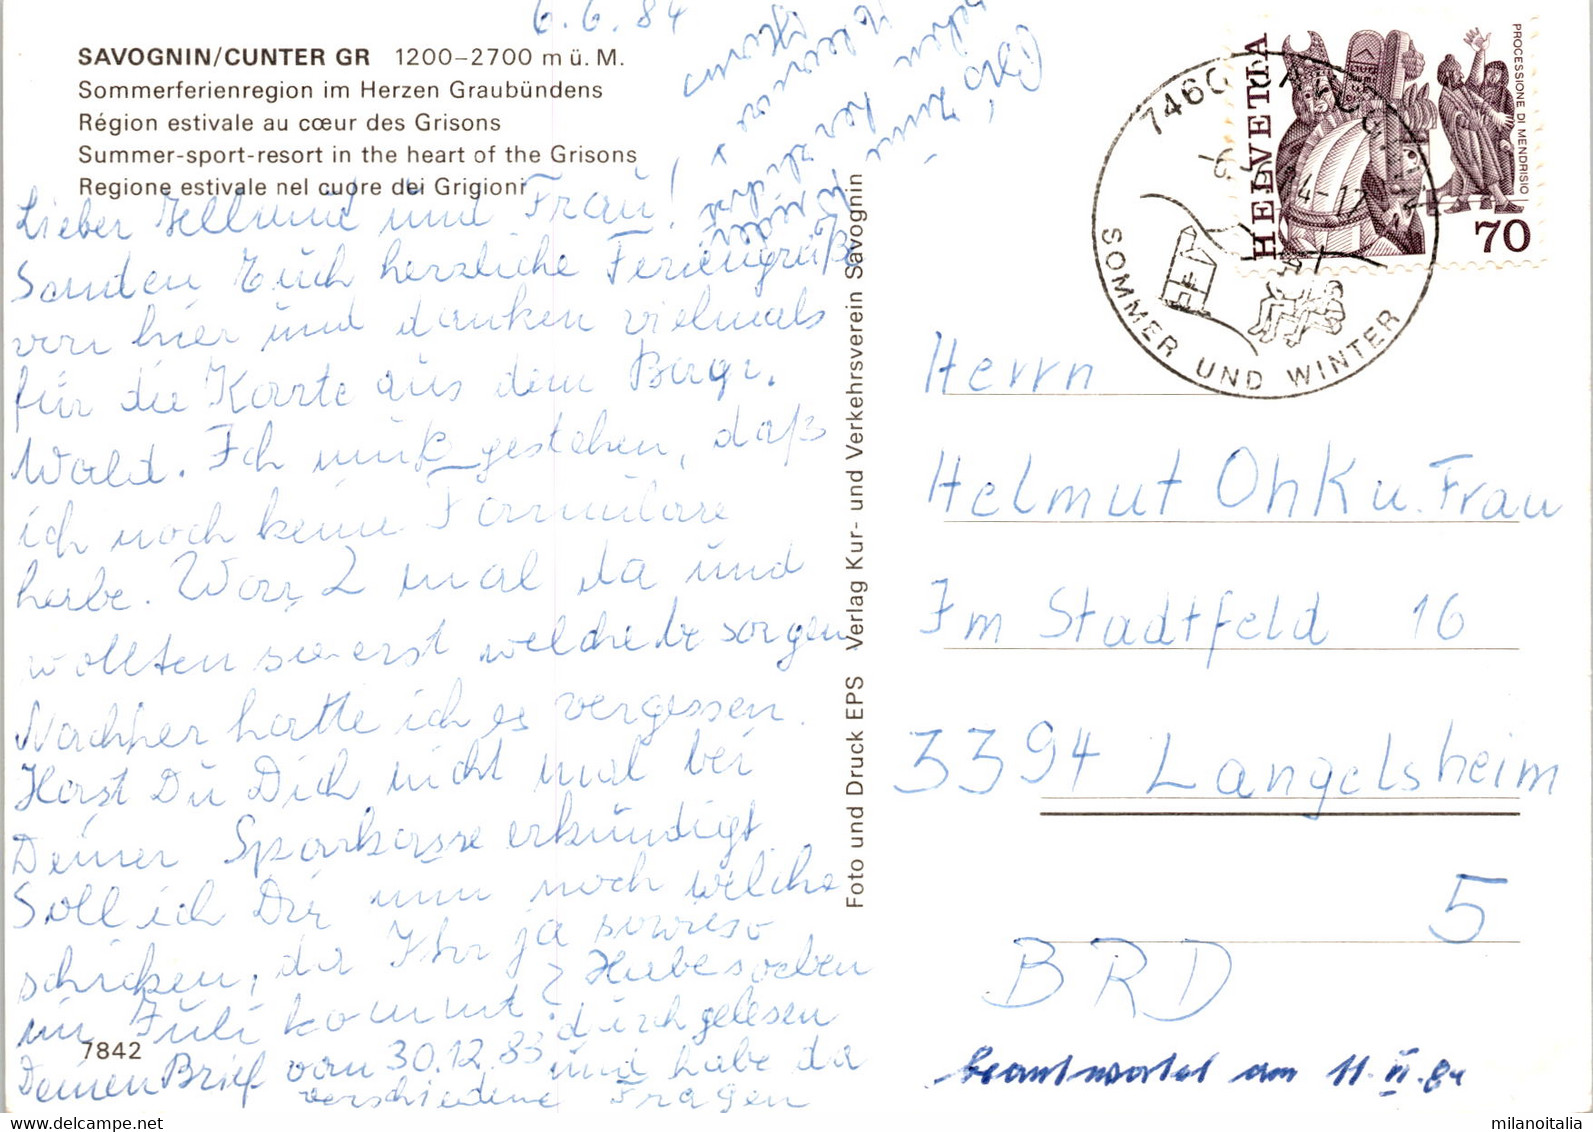 6.6.84
SAVOGNIN/CUNTER GR 1200–2700 m ü. M.
Sommerferienregion im Herzen Graubündens
Région estivale au cœur des Grisons
Summer-sport-resort in the heart of the Grisons
Regione estivale nel cuore dei Grigioni
Lieber Hellmut und Frau!
Senden Euch herzliche Feriengrüße
von hier und danken vielmals
für die Karte aus dem Bayr.
Wald. Ich muß gestehen, daß
ich noch keine Formulare
habe. War 2 mal da und
wollten sie erst welche besorgen
Nachher hatte ich es vergessen.
Hast Du Dich nicht mal bei
Deiner Sparkasse erkundigt
Soll ich Dir nun noch welche
schicken, da Ihr ja sowieso
im Juli kommt? Habe soeben
Deinen Brief vom 30.12.83 durchgelesen
und habe da
verschiedene Fragen
7842
Foto und Druck EPS Verlag Kur- und Verkehrsverein Savognin
7460
SOMMER UND WINTER
HELVETIA
PROCESSIONE DI MENDRISIO
70
Herrn
Helmut Ohk u. Frau
Im Stadtfeld 16
3394 Langelsheim
5
BRD
beantwortet am 11.VI.84
milanoitalia